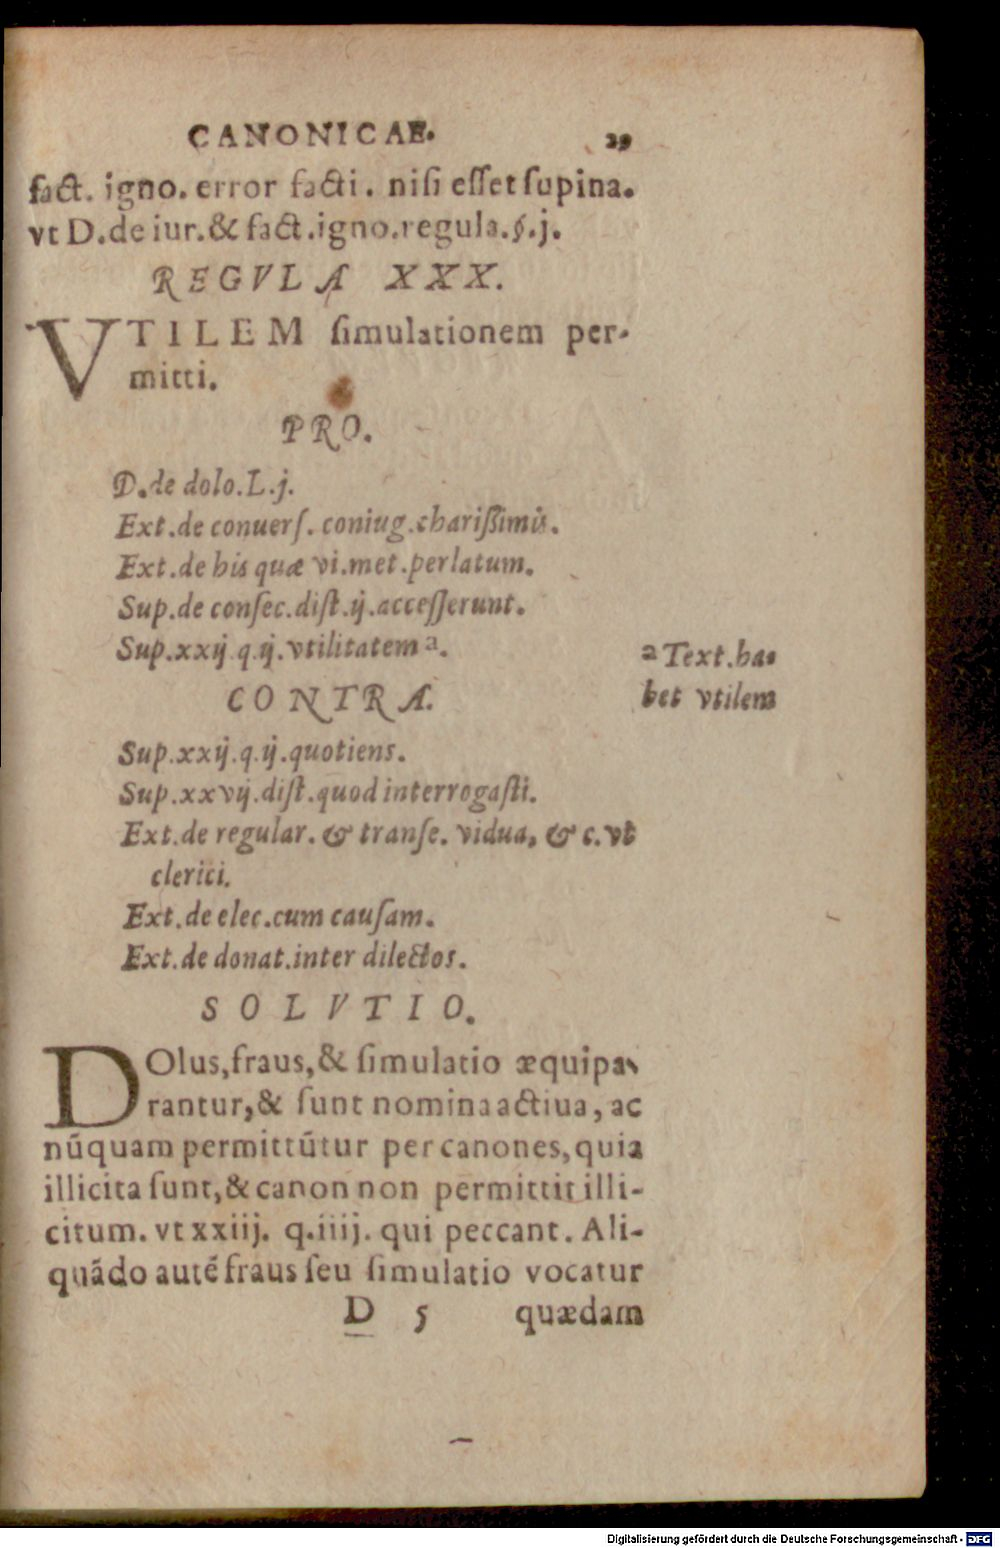 CANONICAE. 29
fact. igno. error facti. niſi eſſet ſupina.
vt D. de iur. & fact. igno. regula. §. j.
REGVLA XXX.
VTILEM ſimulationem per-
mitti.
PRO.
D. de dolo. L. j.
Ext. de conuerſ. coniug. chariſſimis.
Ext. de his quæ vi. met. perlatum.
Sup. de conſec. diſt. ij. acceſſerunt.
Sup. xxij q. ij. vtilitatem ª.
ª Text. ha-
bet vtilem
CONTRA.
Sup. xxij. q. ij. quotiens.
Sup. xxvij. diſt. quod interrogaſti.
Ext. de regular. & tranſe. vidua, & c. vt
clerici.
Ext. de elec. cum cauſam.
Ext. de donat. inter dilectos.
SOLVTIO.
DOlus, fraus, & ſimulatio æquipa-
rantur, & ſunt nomina actiua, ac
nūquam permittūtur per canones, quia
illicita ſunt, & canon non permittit illi-
citum. vt xxiij. q. iiij. qui peccant. Ali-
quādo autē fraus ſeu ſimulatio vocatur
D 5 quædam
Digitalisierung gefördert durch die Deutsche Forschungsgemeinschaft - DFG